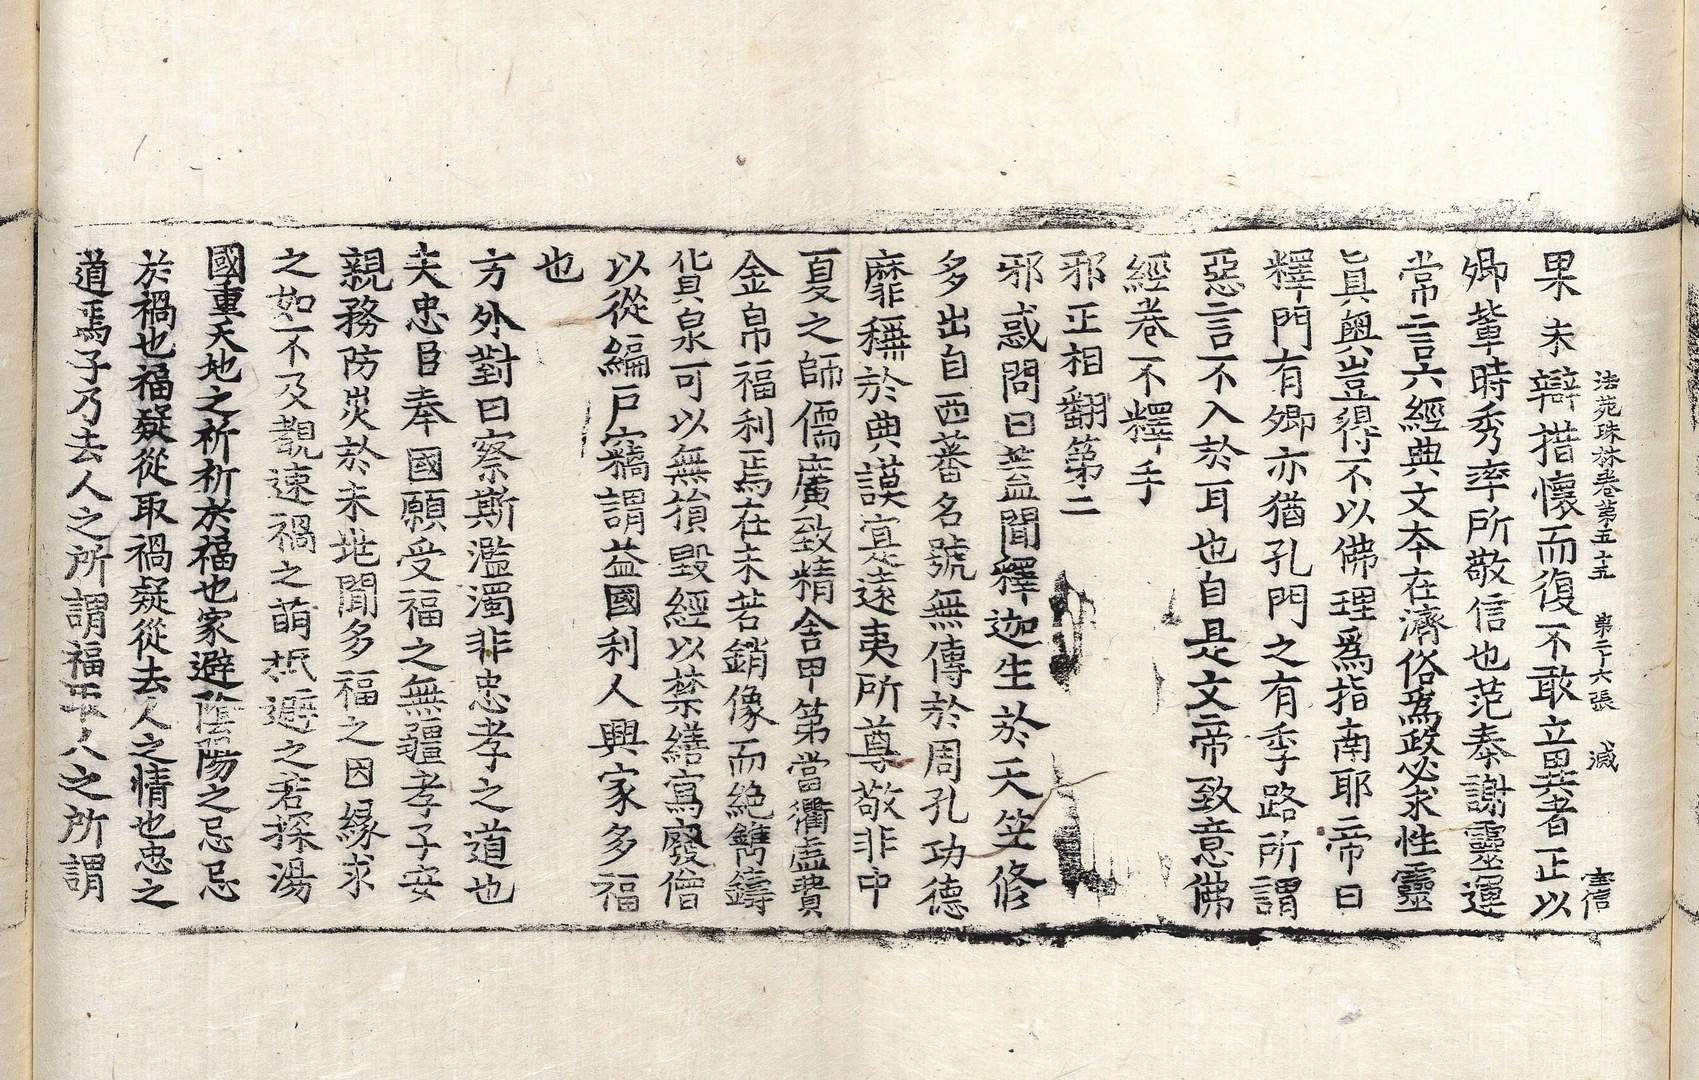 法苑珠林卷第五十五 第二十六張 減 宝信
果未辯措懷而復不敢立異者正以
卿輩時秀率所敬信也范泰謝靈運
常言六經典文本在濟俗爲政必求性靈
眞奧豈得不以佛理爲指南耶帝曰
釋門有卿亦猶孔門之有季路所謂
惡言不入於耳也自是文帝致意佛
經卷不釋手
邪正相翻第二
邪惑問曰盖聞釋迦生於天竺修
多出自西蕃名號無傳於周孔功德
靡稱於典謨寔遠夷所尊敬非中
夏之師儒廣致精舍甲第當衢虛費
金帛福利焉在未若銷像而絶鐫鑄
貨泉可以無損毀經以禁繕寫廢僧
以從編戶竊謂益國利人興家多福
也
方外對曰察斯濫濁非忠孝之道也
夫忠臣奉國願受福之無疆孝子安
親務防災於未兆聞多福之因緣求
之如不及覩速禍之萌柢避之若探湯
國重天地之祈祈於福也家避陰陽之忌忌
於禍也福疑從取禍疑從去人之情也忠之
道焉子乃去人之所謂福取人之所謂